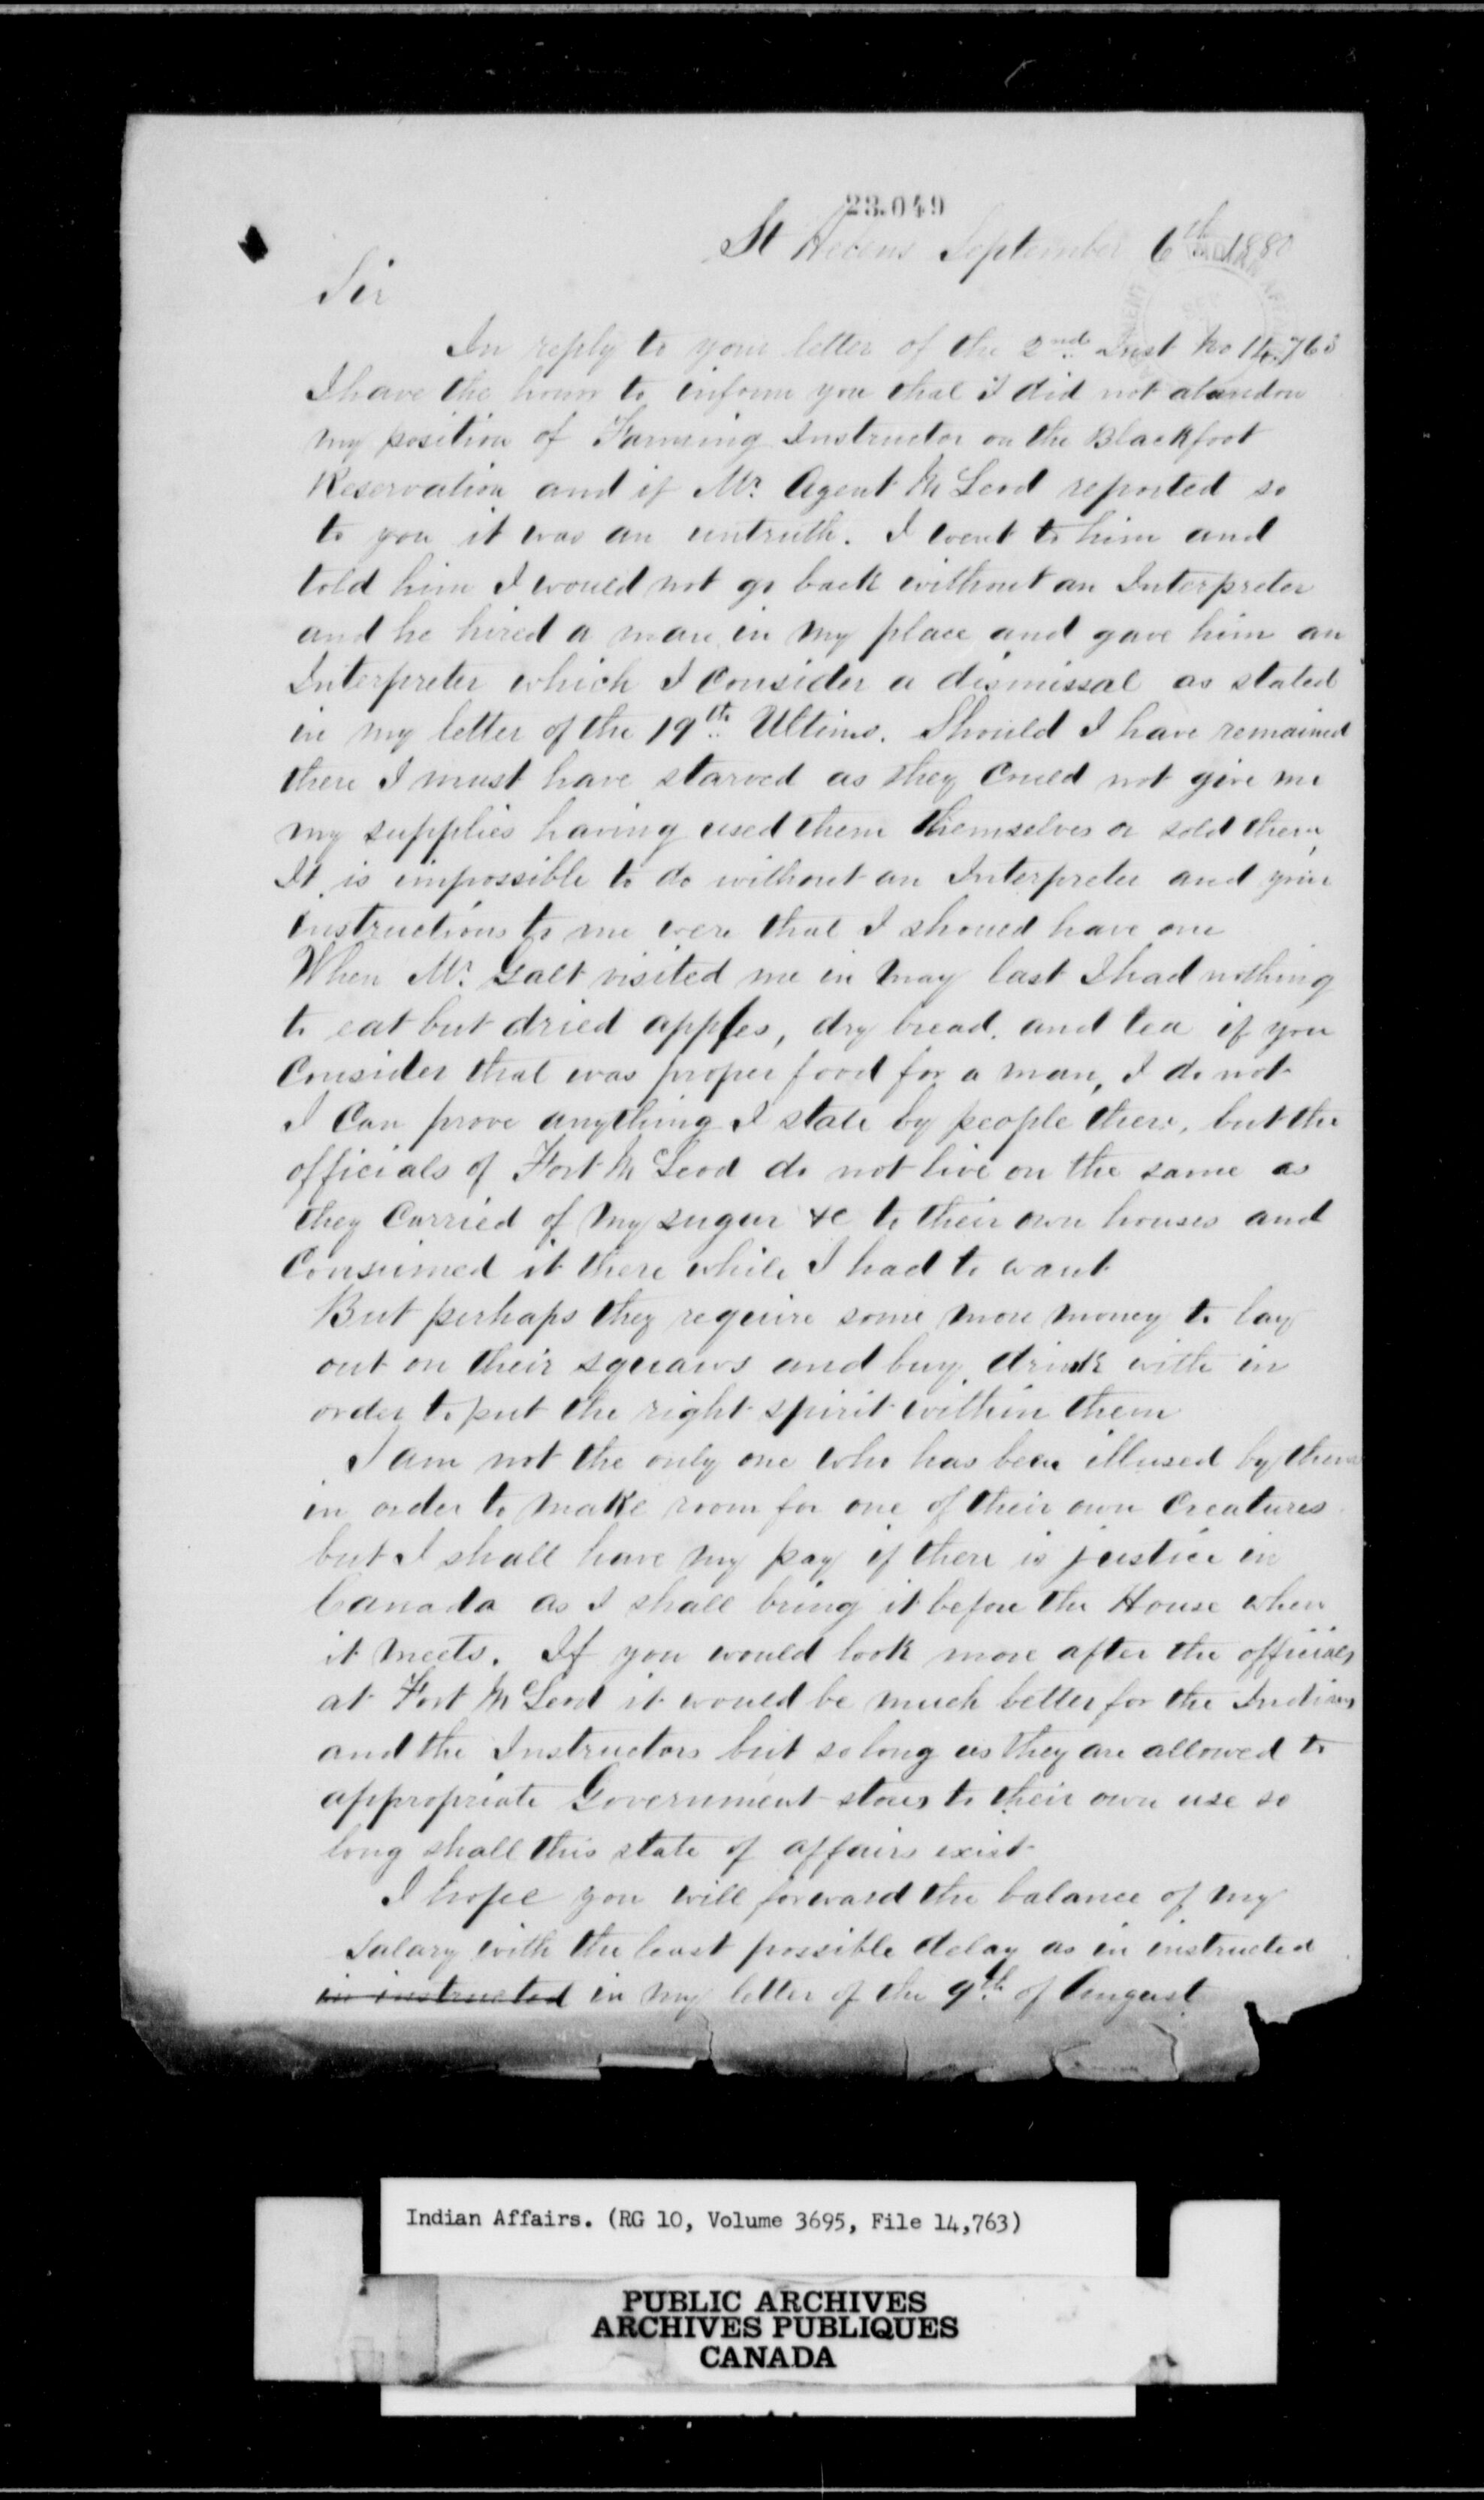 23.049
St Helens September 6th 1880
Sir
In reply to your letter of the 2nd Inst No 14.763
I have the honor to inform you that I did not abandon
my position of Farming Instructor on the Blackfoot
Reservation and if Mr. Agent McLeod reported so
to you it was an untruth. I went to him and
told him I would not go back without an Interpreter
and he hired a man in my place and gave him an
Interpreter which I consider a dismissal as stated
in my letter of the 19th Ultimo. Should I have remained
there I must have starved as they could not give me
my supplies having used them themselves or sold them,
It is impossible to do without an Interpreter and your
instructions to me were that I should have one
When Mr. Galt visited me in May last I had nothing
to eat but dried apples, dry bread. and tea if you
Consider that was proper food for a man, I do not
I Can prove anything I state by people there, but the
officials of Fort McLeod do not live on the same as
they Carried of my sugar &c to their own houses and
Consumed it there while I had to want
But perhaps they require some more money to lay
out on their squaws and buy drink with in
order to put the right spirit within them
I am not the only one who has been illused by them
in order to make room for one of their own Creatures
but I shall have my pay if there is justice in
Canada as I shall bring it before the House when
it meets. If you would look more after the officials
at Fort McLeod it would be much better for the Indians
and the Instructors but so long as they are allowed to
appropriate Government stores to their own use so
long shall this state of affairs exist
I hope you will forward the balance of my
salary with the least possible delay as in instructed
in instructed in my letter of the 9th of August
Indian Affairs. (RG 10, Volume 3695, File 14,763)
PUBLIC ARCHIVES
ARCHIVES PUBLIQUES
CANADA